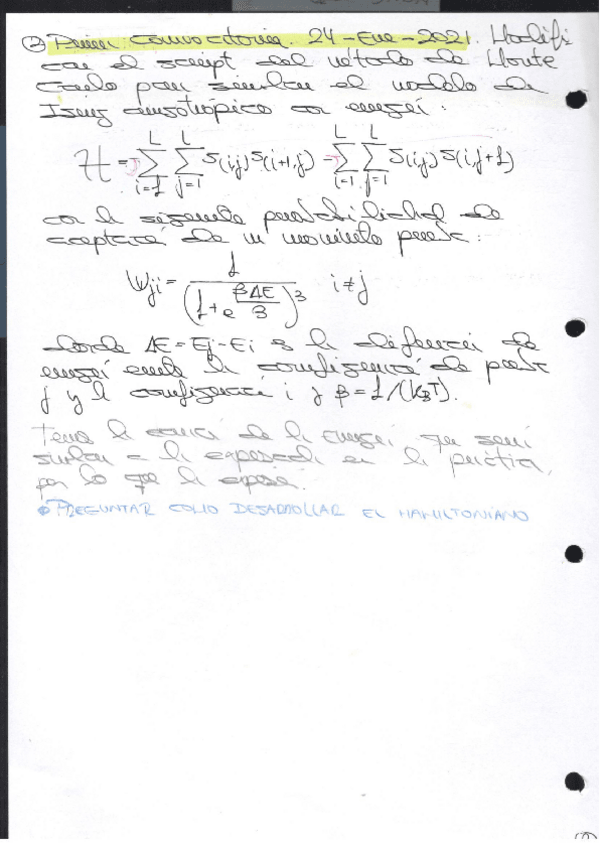 ② Primera convocatoria. 24-Ene-2021. Modifi
car el script del método de Monte
Carlo para simular el modelo de
Ising anisotrópico con energía:
H = -J∑_{i=1}^{L} ∑_{j=1}^{L} S(i,j) S(i+1,j) - J∑_{i=1}^{L} ∑_{j=1}^{L} S(i,j) S(i,j+1)
con la siguiente probabilidad de
aceptación de un movimiento
W_{ji} = 1/(1+e^{βΔE/3})^3 i≠j
donde ΔE = Ej - Ei es la diferencia de
energía entre la configuración de
j y la configuración i y β = 1/(K_BT).
la de la Energía que será
similar a la en la práctica,
por lo que la
PREGUNTAR COMO DESARROLLAR EL HAMILTONIANO